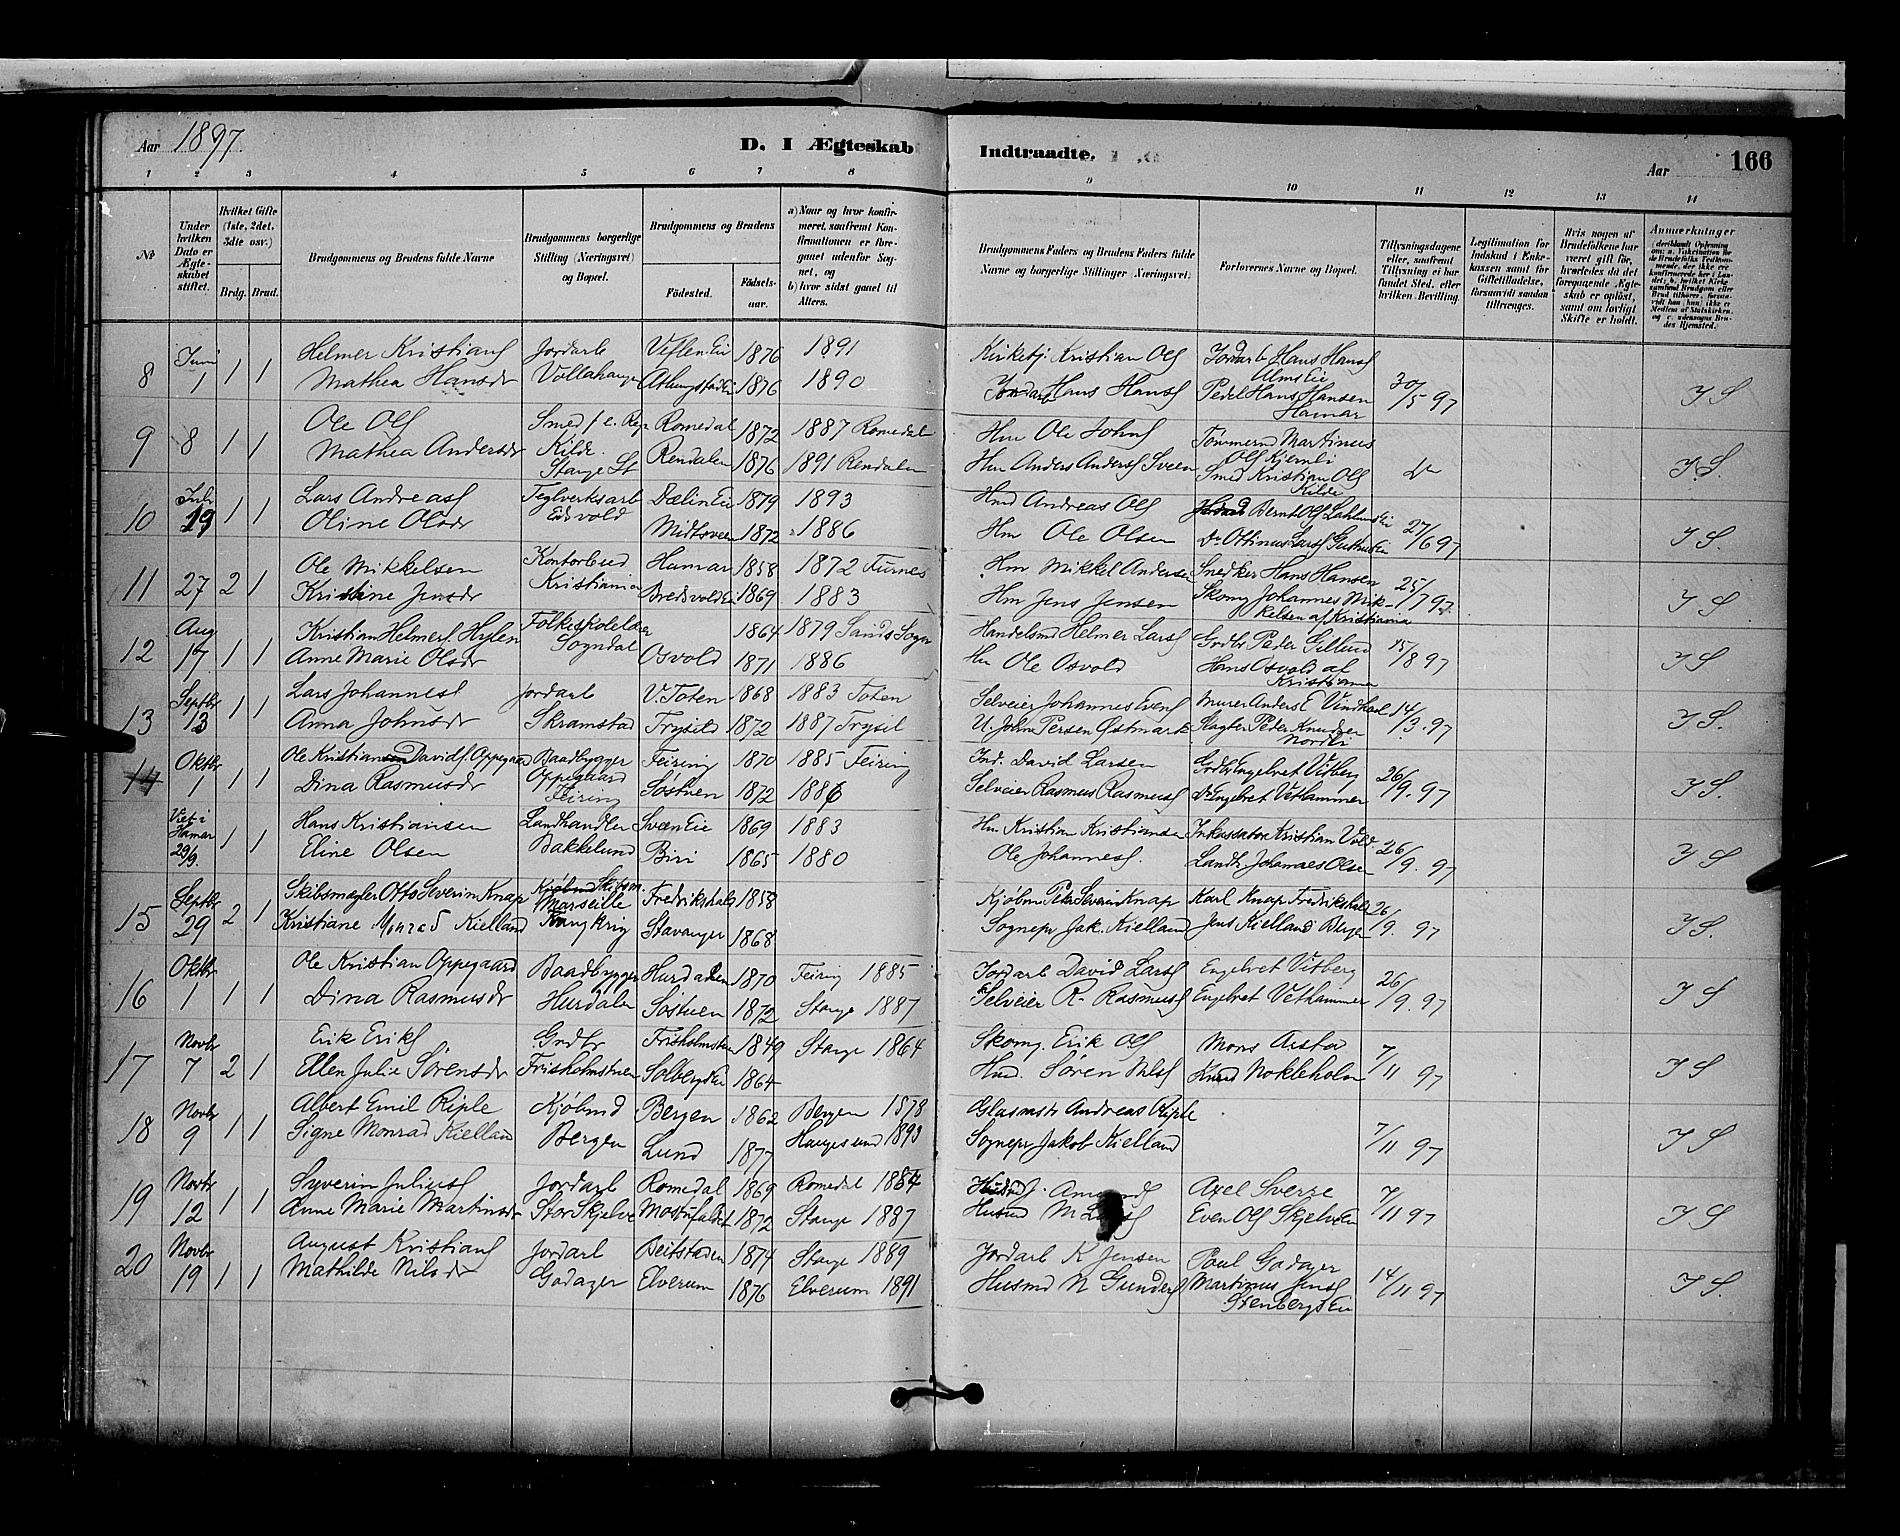 Aar 1897.
D. I Ægteskab Indtraadte.
Aar
166
1 2 3 4 5 6 7 8 9 10 11 12 13 14
No
Under hvilken Dato er Ægteskabet stiftet.
Hvilket Gifte (1ste, 2det, 3die osv.)
Brdg. Brud.
Brudgommens og Brudens fulde Navne
Brudgommens borgerlige Stilling (Næringsvei) og Bopæl.
Brudgommens og Brudens
Fødested.
Fødselsaar.
a) Naar og hvor konfirmeret, saafremt Konfirmationen er foregaaet udenfor Sognet, og
b) hvor sidst gaaet til Alters.
Brudgommens Faders og Brudens Faders fulde Navne og borgerlige Stillinger (Næringsvei)
Forlovernes Navne og Bopæl.
Tillysningsdagene eller, saafremt Tillysning ei har fundet Sted, efter hvilken Bevilling.
Legitimation for Indskud i Enkekassen samt for Giftetilladelse, forsaavidt saadan tiltrænges.
Hvis nogen af Brudefolkene har været gift før, hvorledes da det foregaaende Ægteskab er opløst, samt om lovligt Skifte er holdt.
Anmerkninger
8 Juni 1 1 1
Helmer Kristians Jordarb 1876 1891 Kirketj. Kristian Ols Jordarb Hans Hans
Mathea Hansdr Vollahaugen 1876 1890 Jordarb Hans Hans Almseie Pedel Hans Hansen Hamar 30/5 97 I S
9 8 1 1
Ole Ols Smed Romedal 1872 1887 Romedal Hm Ole Johns Tømmerm Martinus Ols Kjernli
Mathea Andersdr Kilde Stange St Rendalen 1876 1891 Rendalen Hm Anders Anders Sveen Smed Kristian Ols Kilde Do I S.
10 Juli 19 1 1
Lars Andreas Teglverksarb Dælin Eie 1879 1893 Hmd Andreas Ols Bernt Ols
Oline Olsdr Eidsvold Midtsveen 1872 1886 Hm Ole Olsen Do Ottinus Lars 27/6 97 I S.
11 27 2 1
Ole Mikkelsen Kontorbud Hamar 1858 1872 Furnes Hm Mikkel Andersen Snedker Hans Hansen
Kristine Jensdr Kristiania 1869 1883 Hm Jens Jensen Skom Johannes Mikkelsen af Kristiania 25/7 97. I S
12 Aug 17 1 1
Kristian Helmers Hylen Folkeskolelærer 1864 1879 Sands Sogn Handelsmd Helmer Lars Grdbr Peder Gillund
Anne Marie Olsdr Sogndal Osvold 1871 1886 Hm Ole Osvold Hans Osvold af Kristiania 15/8 97 I S
13 Septbr 13 1 1
Lars Johannes Jordarb V. Toten 1868 1883 Toten Selveier Johannes Evens Murer Anders E
Anna Johnsdr Skramstad Trysild 1872 1887 Trysil U. John Persen Østmark Slagter Peder Knudsen Nordli 14/9. 97 I S.
14 Oktbr 1 1 1
Ole Kristian Davids. Oppegaard Baadbygger Feiring 1870 1885 Feiring Ind. David Larsen Grdbr Engebret Vitberg
Dina Rasmusdr Oppegaard Feiring Søstuen 1872 1886 Selveier Rasmus Rasmus Do Engebret Vethammer 26/9. 97 I S.
Viet i Hamar 29/9. 1 1
Hans Kristiansen Landhandler Sveen Eie 1869 1883 Hm Kristian Kristiansen Inkassator Kristian Vold
Eline Olsen Bakkelund Biri 1865 1880 Ole Johannes. Landh. Johannes Olsen 26/9. 97 I S
15 Septbr 29 2 1
Skibsmægler Otto Severin Knap Marseille Fredrikshald 1858 Kjøbm Severin Knap Karl Knap Fredrikshald
Kristiane Monrad Kielland Stavanger 1868 Sognepr Jak. Kielland Jens Kielland Bergen 26/9. 97 I S.
16 Oktbr 1 1 1
Ole Kristian Oppegaard Baadbygger Hurdalen 1870 Feiring 1885 Jordarb David Lars Engebret Vitberg
Dina Rasmusdr Hurdalen Søstuen 1872 Stange 1887 Selveier R. Rasmus Engebret Vethammer 26/9. 97 I S
17 Novbr 7 2 1
Erik Eriks Grdbr Frisholmstuen 1849 Stange 1864 Skomg. Erik Ols Mons Arstad
Ellen Julie Sørensdr Frisholmstuen 1864 Hmd. Søren Nils Knud Nokleholm 7/11 97 I S
18 Novbr 9 1 1
Albert Emil Riple Kjøbmd Bergen 1862 Bergen 1878 Glasmstr Andreas Riple
Signe Monrad Kielland Bergen Lund 1877 Haugesund 1893 Sognepr Jakob Kielland 7/11 97 I S
19 Novbr 12 1 1
Syverin Julius Jordarb Romedal 1869 Romedal 1884 Axel Sverre
Anne Marie Martinsdr Stor Skjelve 1872 Stange 1887 Husmd M Lars Even Ols 7/11 97 I S
20 Novbr 19 1 1
August Kristians Jordarb Beitstaden 1874 Stange 1889 Jordarb K Jensen Poul Godager
Mathilde Nilsdr Godager Elverum 1876 Elverum 1891 Husmd N Gunders Martinus Jens Stenbergseie 14/11 97 I S.